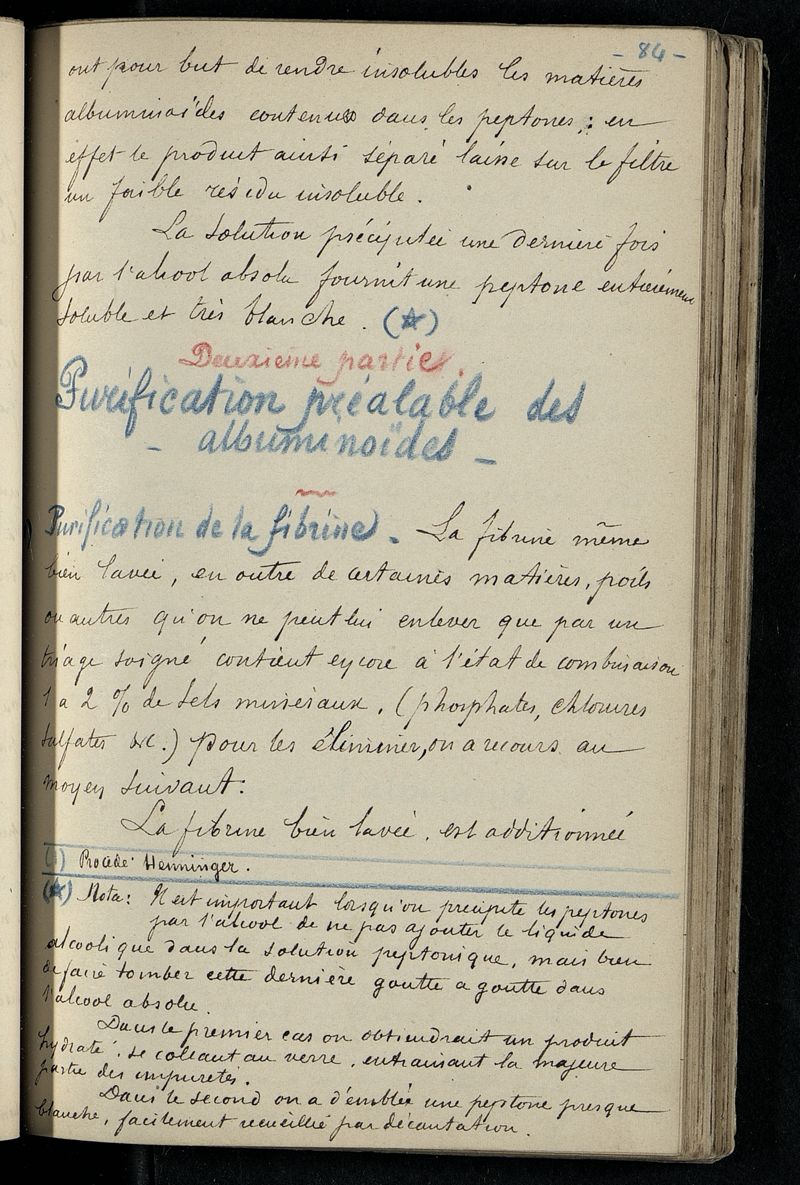 - 84 -
ont pour but de rendre insolubles les matières
albuminoïdes contenues dans les peptones ; en
effet le produit ainsi séparé laisse sur le filtre
un faible résidu insoluble .
La solution précipitée une dernière fois
par l'alcool absolu fournit une peptone entièrement
soluble et très blanche . (☆)
Deuxième partie.
Purification préalable des
- albuminoïdes -
Purification de la fibrine . La fibrine même
bien lavée, en outre de certaines matières, poils
ou autres qu'on ne peut lui enlever que par un
triage soigné contient encore à l'état de combinaison
1 a 2 % de sels minéraux . (phosphates, chlorures
sulfates &c.) pour les éliminer, on a recours au
moyen suivant :
La fibrine bien lavée . est additionnée
(1) Procédé Henninger .
(☆) Nota : Il est important lorsqu'on précipite les peptones
par l'alcool de ne pas ajouter le liquide
alcoolique dans la solution peptonique, mais bien
de faire tomber cette dernière goutte a goutte dans
l'alcool absolu .
Dans le premier cas on obtiendrait un produit
hydraté . se collant au verre . entrainant la majeure
partie des impuretés .
Dans le second on a d'emblée une peptone presque
blanche, facilement recueillie par décantation .